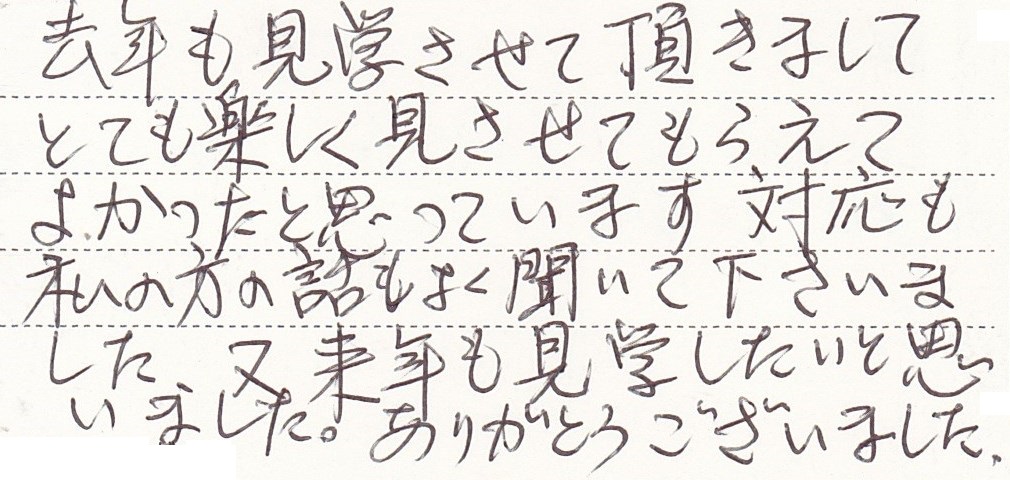 去年も見学させて頂きまして
とても楽しく見させてもらえて
よかったと思っています 対応も
私の方の話もよく聞いて下さいま
した 又来年も見学したいと思
いました。ありがとうございました.